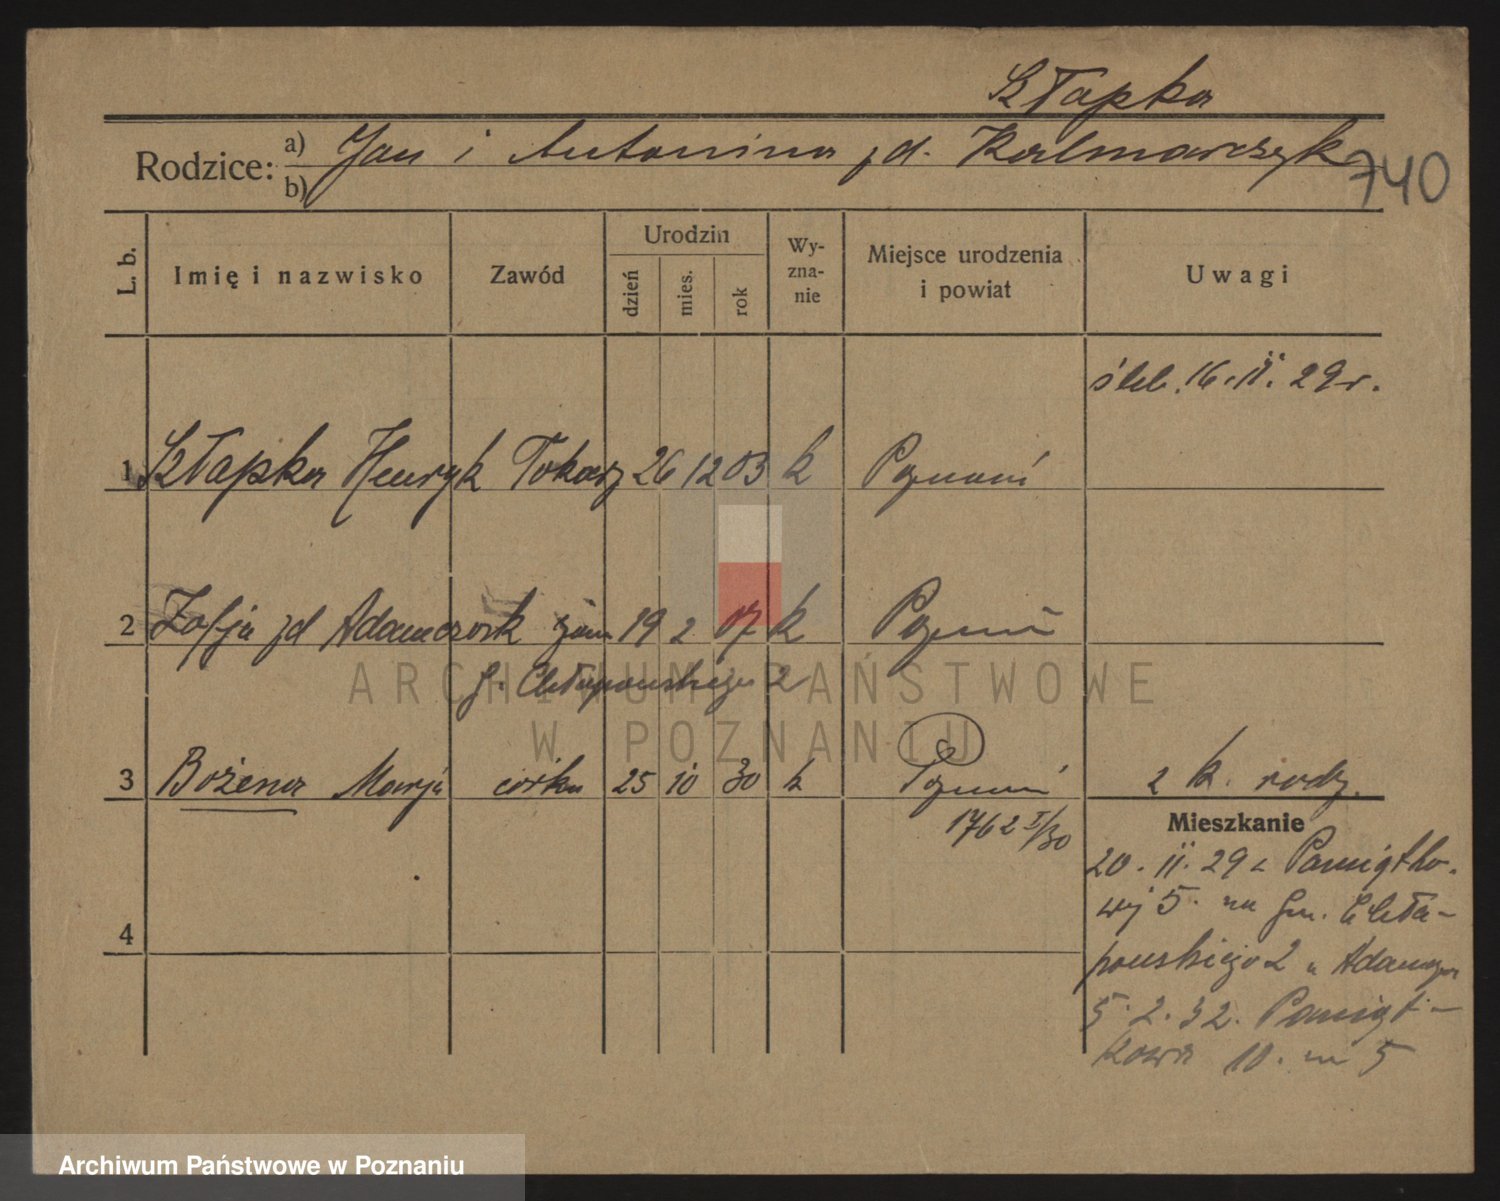 Szłapka
Rodzice: a) Jan i Antonina zd. Kalmarczyk
b)
740
L. b.
Imię i nazwisko
Zawód
Urodzin
dzień
mies.
rok
Wy-
zna-
nie
Miejsce urodzenia
i powiat
Uwagi
ślub. 16. II. 29 r.
1 Szłapka Henryk Tokarz 26 12 03 k Poznań
2 Zofja zd Adamczak żona 19 2 07 k Poznań
G. Chłapowskiego 2
3 Bożena Marja córka 25 10 30 k Poznań
2 k. rodz.
1762 I/30
Mieszkanie
20. II. 29 z Pamiątko-
wej 5 na Gen. Chła-
powskiego 2 u Adamcza
5. 2. 32. Pamiąt-
kowa 10. m 5
4
ARCHIWUM PAŃSTWOWE
W POZNANIU
Archiwum Państwowe w Poznaniu